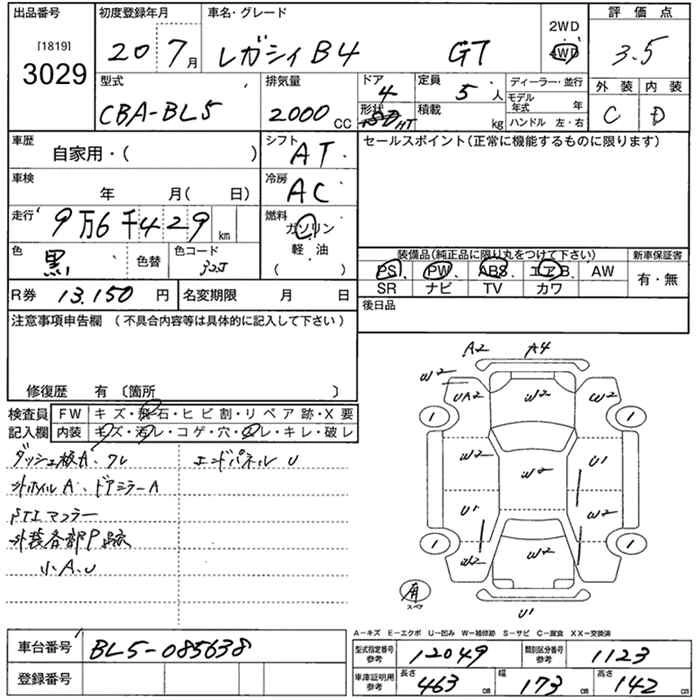 出品番号
[1819]
3029
初度登録年月
20 7月
車名・グレード
レガシィB4 GT
2WD
4WD
評価点
3.5
外装 内装
C D
型式
CBA-BL5
排気量
2000 CC
ドア
4
形状
HT
定員
5 人
積載
kg
ディーラー・並行
モデル年式 年
ハンドル 左・右
車歴
自家用・( )
シフト
AT
セールスポイント(正常に機能するものに限ります)
車検
年 月( 日)
冷房
AC
走行
9万6千429 km
燃料
ガソリン
軽油
( )
色
黒
色替
色コード
32J
装備品(純正品に限り丸をつけて下さい)
PS PW ABS エアB. AW
SR ナビ TV カワ
新車保証書
有・無
R券 13.150 円
名変期限 月 日
後日品
注意事項申告欄 (不具合内容等は具体的に記入して下さい)
修復歴 有〔箇所 〕
検査員
記入欄
FW キズ・飛石・ヒビ割・リペア跡・X要
内装 キズ・汚レ・コゲ・穴・スレ・キレ・破レ
ダッシュ板A、クレ
エンドパネル U
外ホイルA、ドアミラーA
STIマフラー
外装各部P跡
小A、U
A2 A4
W2
UA2 W2 W2
1 1
W2 W2 U1
U1 W2
1 1
W2 W2
有
スペア
U1
A-キズ E-エクボ U-凹み W-補修跡 S-サビ C-腐食 XX-交換済
車台番号 BL5-085638
登録番号
型式指定番号
参考
12049
類別区分番号
参考
1123
車庫証明用
参考
長さ
463 cm
幅
173 cm
高さ
142 cm